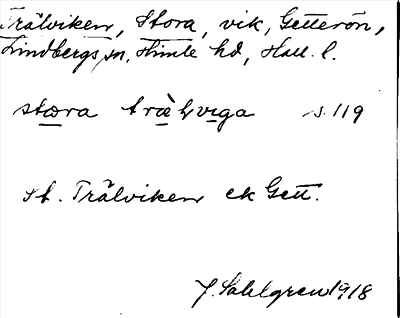 Trälviken, Stora, vik, Getterön,
Lindbergs sn, Himle hd, Hall. l.
stora trälviga s. 119
St. Trälviken ek Gett.
J. Sahlgren 1918